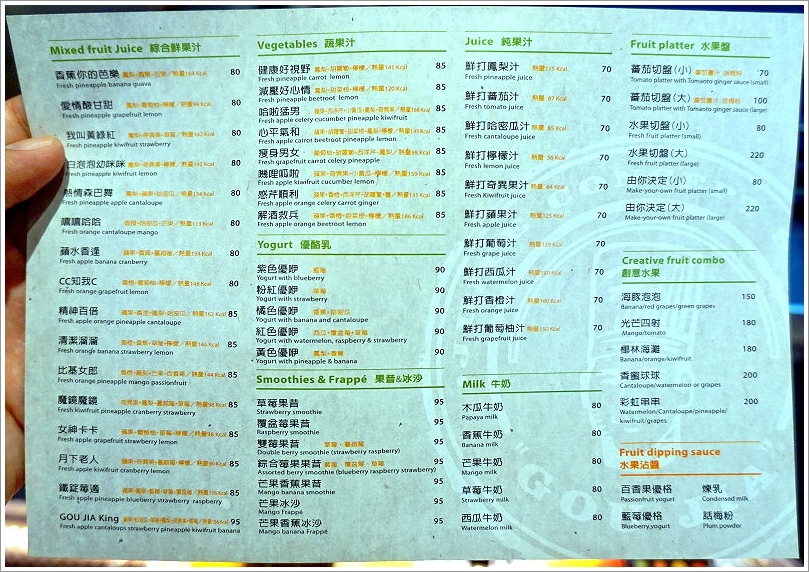 Mixed fruit Juice 綜合鮮果汁
香蕉你的芭樂 80
Fresh pineapple banana guava
愛情酸甘甜 80
Fresh pineapple grapefruit lemon
我叫黃綠紅 80
Fresh pineapple kiwifruit strawberry
白泡泡幼咪咪 80
Fresh pineapple kiwifruit lemon
熱情森巴舞 80
Fresh pineapple apple cantaloupe
嘻嘻哈哈 80
Fresh orange cantaloupe mango
蘋水香逢 85
Fresh apple banana cranberry
CC知我C 80
Fresh orange grapefruit lemon
精神百倍 85
Fresh apple orange pineapple cantaloupe
清潔溜溜 85
Fresh orange banana strawberry lemon
比基女郎 85
Fresh orange pineapple mango passionfruit
魔鏡魔鏡 85
Fresh kiwifruit pineapple cranberry strawberry
女神卡卡 85
Fresh apple grapefruit strawberry lemon
月下老人 85
Fresh apple kiwifruit cranberry lemon
鐵錠莓適 85
Fresh apple pineapple blueberry strawberry raspberry
GOU JIA King 95
Fresh apple cantaloups strawberry pineapple kiwifruit banana
Vegetables 蔬果汁
健康好視野 鳳梨+胡蘿蔔+檸檬／熱量141 Kcal 85
Fresh pineapple carrot lemon
減壓好心情 鳳梨+甜菜根+檸檬／熱量120 Kcal 85
Fresh pineapple beetroot lemon
哈啦猛男 85
Fresh apple celery cucumber pineapple kiwifruit
心平氣和 85
Fresh apple carrot beetroot pineapple lemon
瘦身男女 85
Fresh grapefruit carrot celery pineapple
嘰哩呱啦 85
Fresh apple kiwifruit cucumber lemon
感芹順利 85
Fresh apple orange celery carrot ginger
解酒救兵 85
Fresh apple orange beetroot lemon
Yogurt 優酪乳
紫色優咿 藍莓 90
Yogurt with blueberry
粉紅優咿 草莓 90
Yogurt with strawberry
橘色優咿 香蕉+甜密瓜 90
Yogurt with banana and cantaloupe
紅色優咿 西瓜+覆盆莓+草莓 90
Yogurt with watermelon, raspberry & strawberry
黃色優咿 鳳梨+香蕉 90
Yogurt with pineapple & banana
Smoothies & Frappé 果昔&冰沙
草莓果昔 95
Strawberry smoothie
覆盆莓果昔 95
Raspberry smoothie
雙莓果昔 草莓、蔓越莓 95
Double berry smoothie (strawberry raspberry)
綜合莓果果昔 藍莓、覆盆莓、草莓 95
Assorted berry smoothie (blueberry raspberry strawberry)
芒果香蕉果昔 95
Mango banana smoothie
芒果冰沙 95
Mango Frappé
芒果香蕉冰沙 95
Mango banana Frappé
Juice 純果汁
鮮打鳳梨汁 熱量115 Kcal 70
Fresh pineapple juice
鮮打蕃茄汁 熱量 87 Kcal 70
Fresh tomato juice
鮮打哈密瓜汁 熱量 85 Kcal 70
Fresh cantaloupe juice
鮮打檸檬汁 熱量 36 Kcal 70
Fresh lemon juice
鮮打奇異果汁 熱量 64 Kcal 70
Fresh Kiwifruit juice
鮮打蘋果汁 熱量125 Kcal 70
Fresh apple juice
鮮打葡萄汁 熱量129 Kcal 70
Fresh grape juice
鮮打西瓜汁 70
Fresh watermelon juice
鮮打香橙汁 70
Fresh orange juice
鮮打葡萄柚汁 70
Fresh grapefruit juice
Milk 牛奶
木瓜牛奶 80
Papaya milk
香蕉牛奶 80
Banana milk
芒果牛奶 80
Mango milk
草莓牛奶 80
Strawberry milk
西瓜牛奶 80
Watermelon milk
Fruit platter 水果盤
蕃茄切盤（小） 70
Tomato platter with Tomaoto ginger sauce (small)
蕃茄切盤（大） 100
Tomato platter with Tomaoto ginger sauce (large)
水果切盤（小） 80
Fresh fruit platter (small)
水果切盤（大） 220
Fresh fruit platter (large)
由你決定（小） 80
Make-your-own fruit platter (small)
由你決定（大） 220
Make-your-own fruit platter (large)
Creative fruit combo
創意水果
海豚泡泡 150
Banana/red grapes/green grapes
光芒四射 180
Mango/tomato
椰林海灘 180
Banana/orange/kiwifruit
香蜜球球 200
Cantaloupe/watermelon or grapes
彩虹串串 200
Watermelon/Cantaloupe/pineapple/
kiwifruit/grapes
Fruit dipping sauce
水果沾醬
百香果優格 煉乳
Passionfruit yogurt Condensed milk
藍莓優格 話梅粉
Blueberry yogurt Plum powder